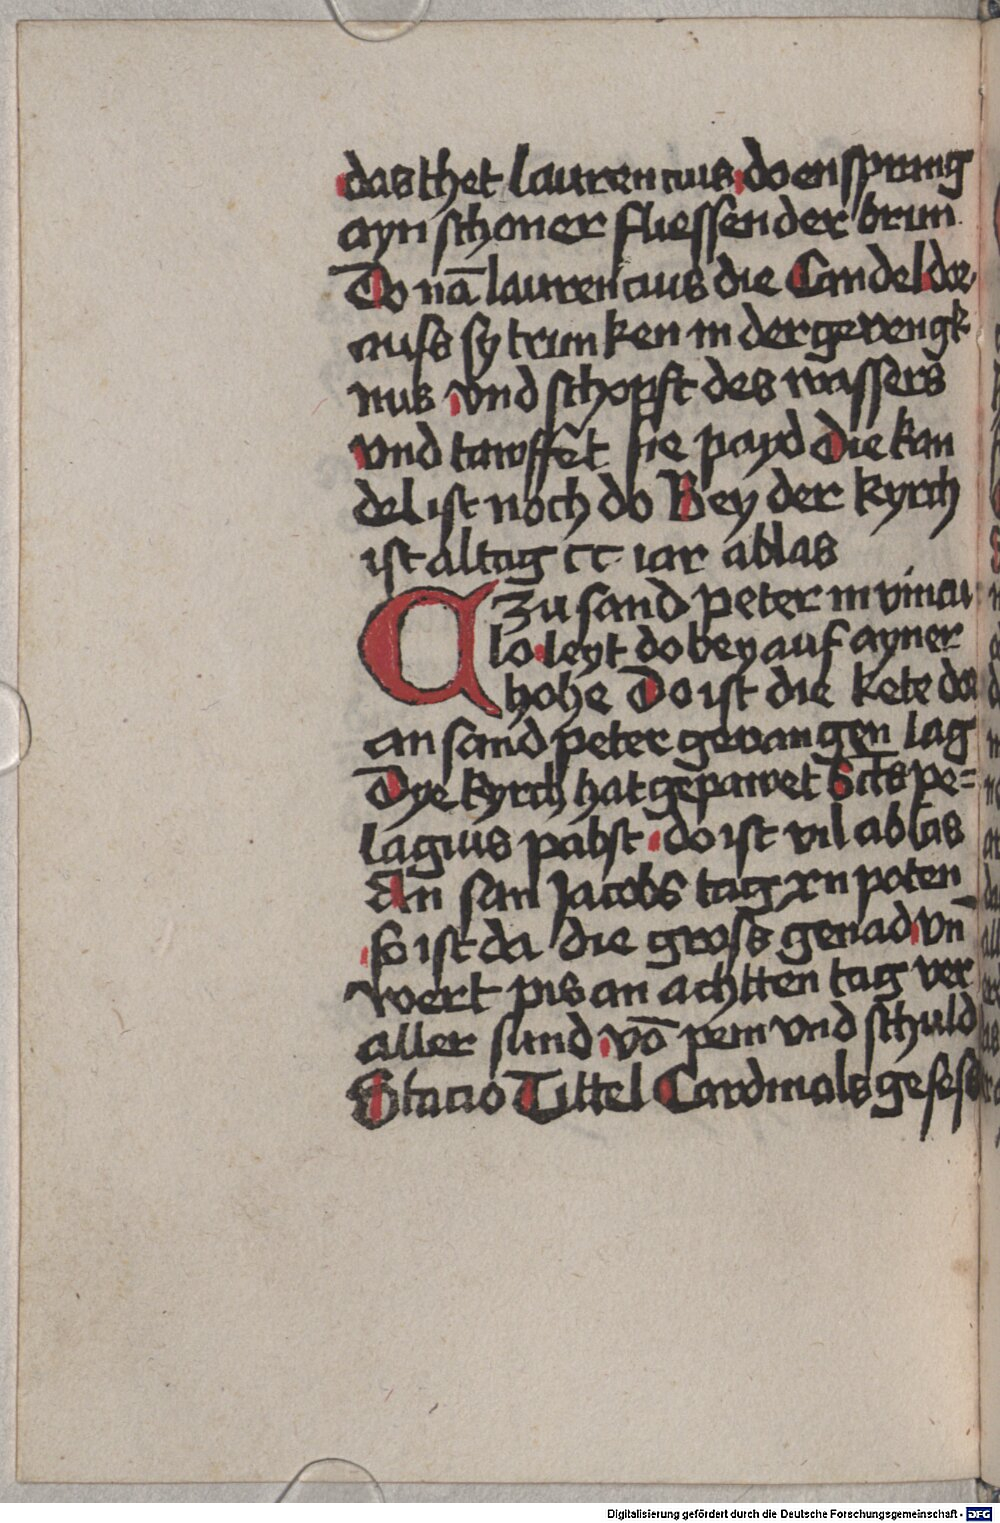 das thet laurencius do ensprung
ayn schoner fliessender brun
Do nā laurencius die Candel dor
auss sy trunken in der gevengk
nus vnd schopft des wassers
vnd tawffet sie payd Die kan
del ist noch do Bey der kyrch
ist altag cc iar ablas
A Zu sand peter in vincu
lo leyt do bey auf ayner
hohe Do ist die kete dor
an sand peter gevangen lag
Dye kyrch hat gepawet Scts pe=
lagius pabst do ist vil ablas
An san Jacobs tag xii poten
so ist da die gross genad vn̄
wert pis an achtten tag ver
aller sund vō pein vnd schuld
Stacio Tittel Cardinals gesess
Digitalisierung gefördert durch die Deutsche Forschungsgemeinschaft - DFG